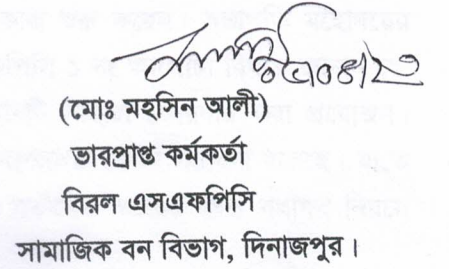 (মোঃ মহসিন আলী)
ভারপ্রাপ্ত কর্মকর্তা
বিরল এসএফপিসি
সামাজিক বন বিভাগ, দিনাজপুর।